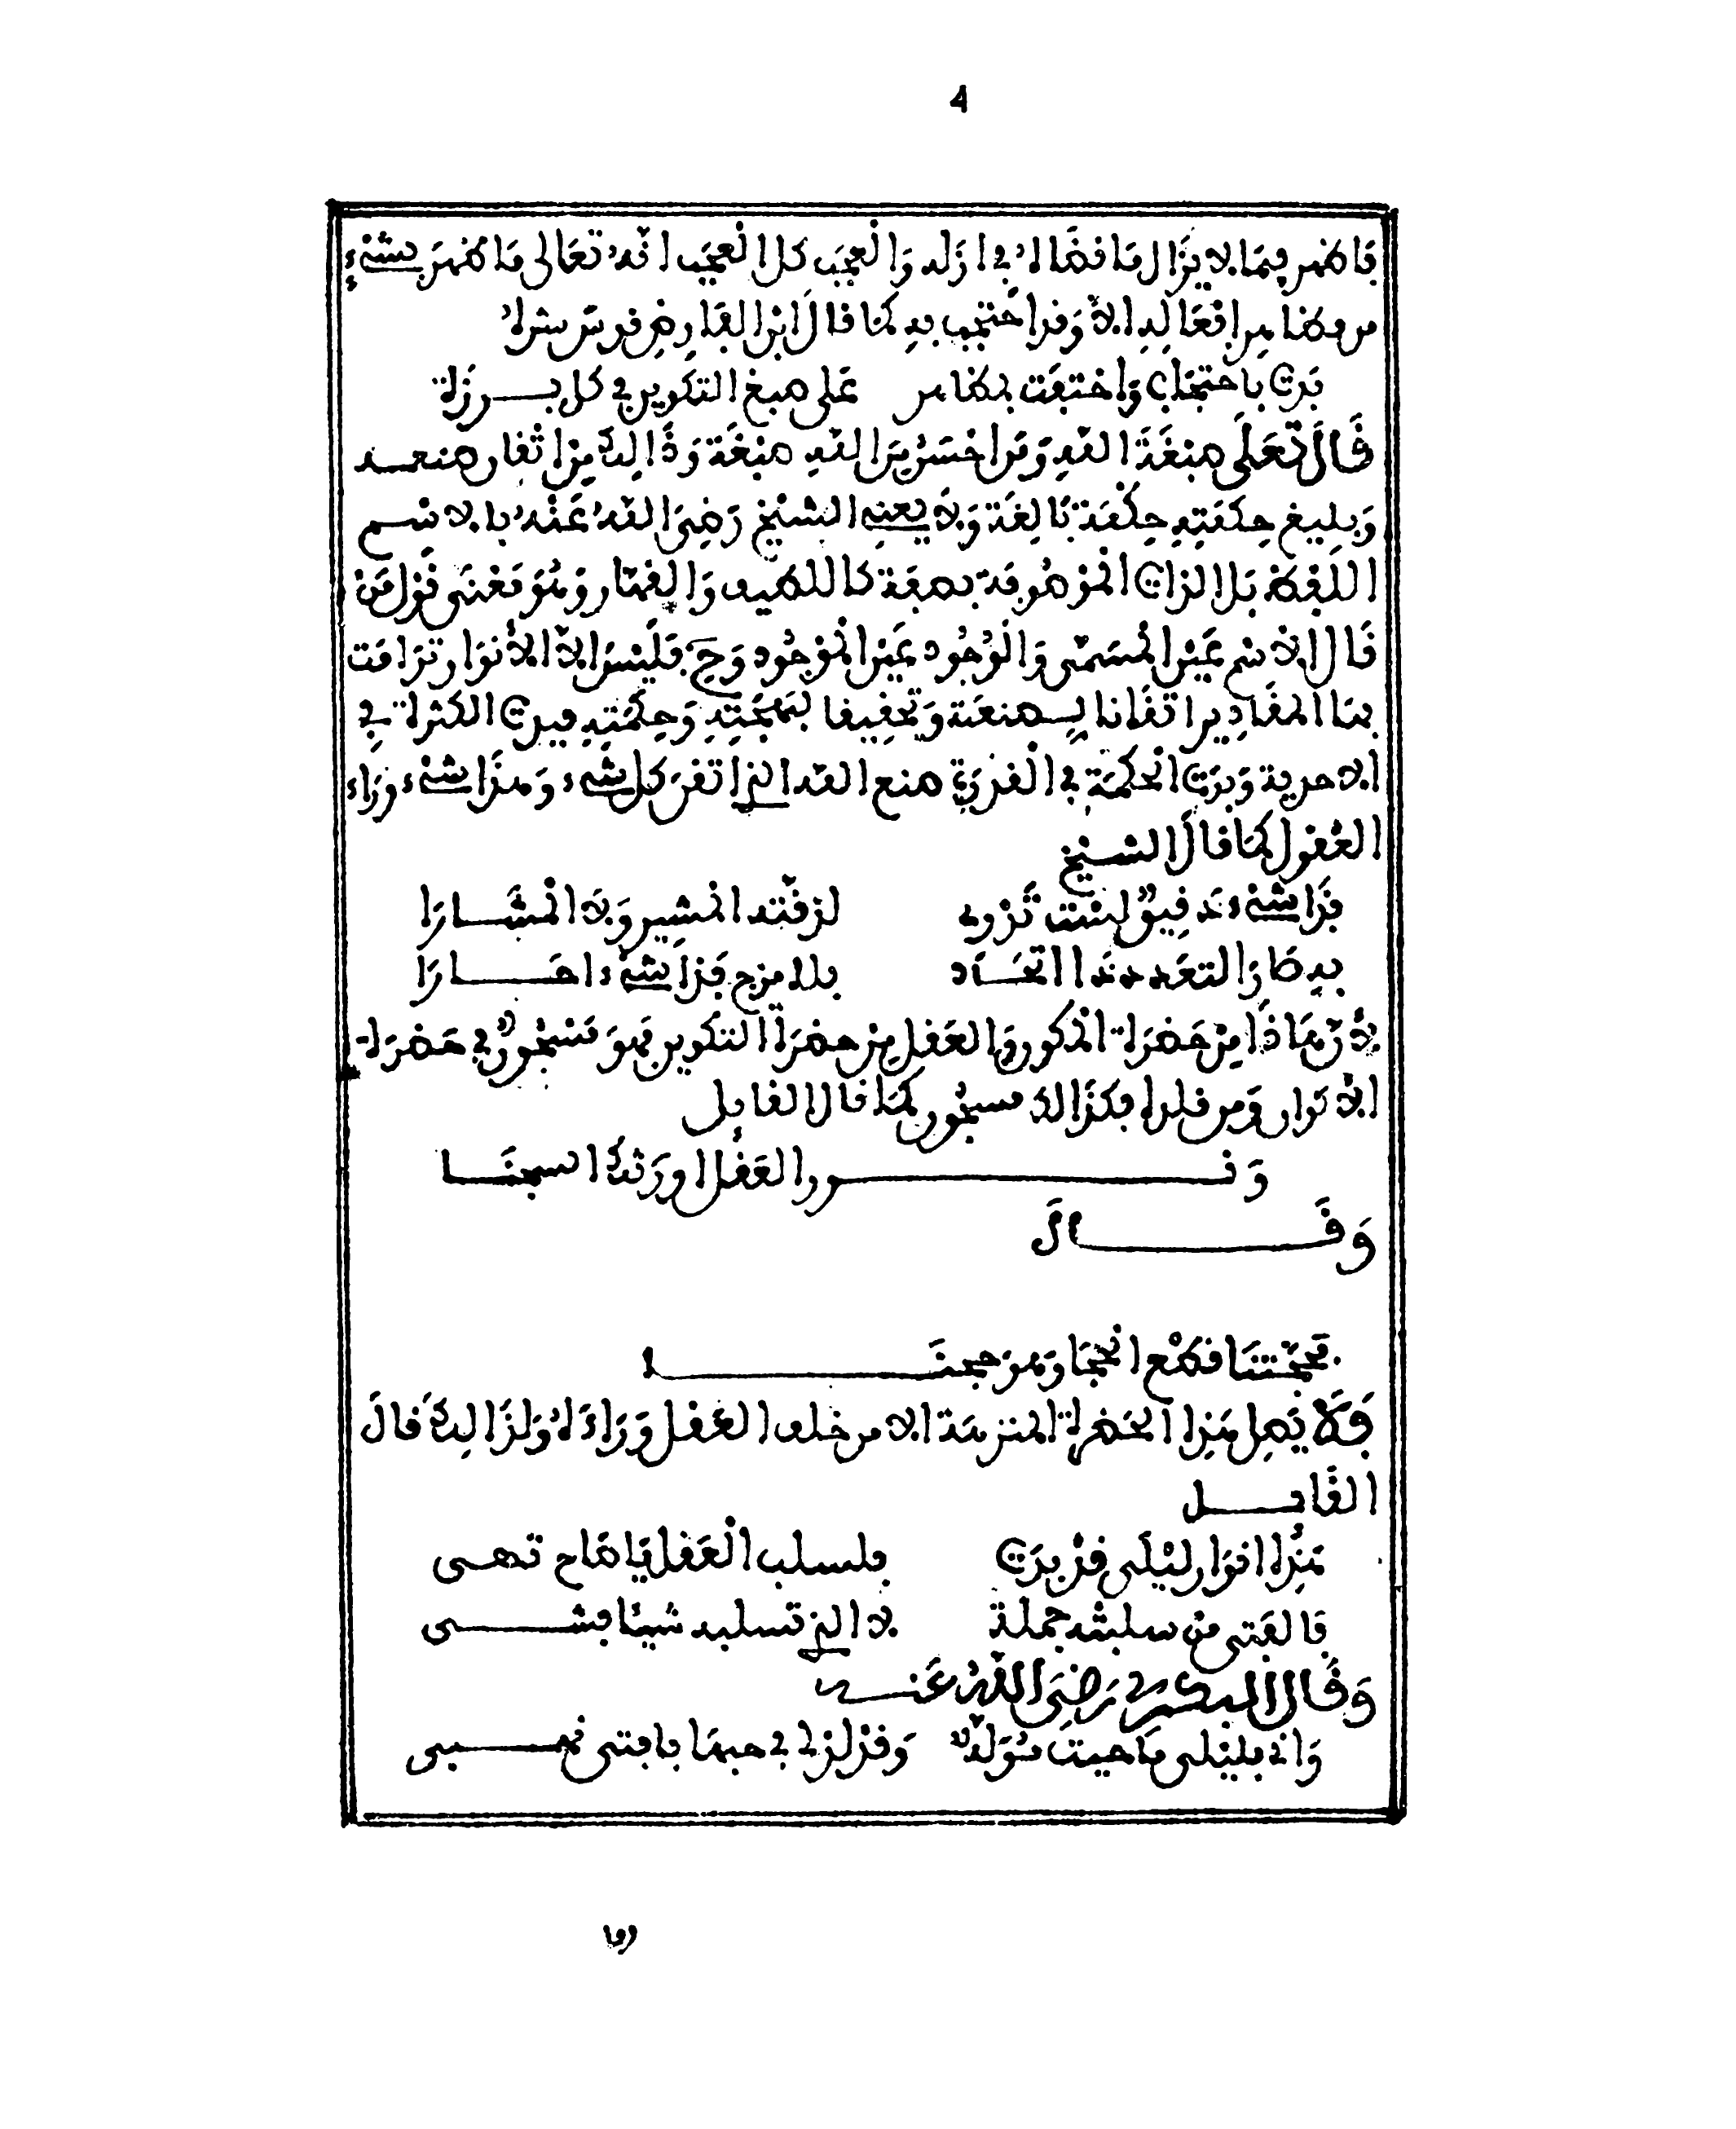 4
فأظهر فيما لا يزال ما قضاه في أزله والعجب كل العجب أنه تعالى ما ظهر بشيء
من مظاهر أفعاله إلا وقد احتجب به كما قال ابن الفارض قدس سره
بدت باحتجاب واختفت بمظاهر على صبغ التكوين في كل برزة
قال تعلى صبغة الله ومن أحسن من الله صبغة وذالك من اتقان صنعه
وبليغ حكمته حكمة بالغة ولا يعني الشيخ رضي الله عنه بالاسم
اللفظ بل الذات الموصوفة بصفة كاللطيف والقهار وهو معنى قول من
قال الاسم عين المسمى والوجود عين الموجود وح فليس إلا الأنوار ترامت
بها المقادير اتقانا لصنعة وتحقيقا لبهجته وحكمته فبدت الكثرة في
الاحدية وبدت الحكمة في القدرة صنع الله الذي اتقن كل شيء وهذا شيء وراء
العقول كما قال الشيخ
فذا شيء دقيق لست تدري لدقته المشير ولا المشارا
به صار التعدد ذا اتحاد بلا مزج فذا شيء احارا
لأن هاذا من حضرة المكون والعقل من حضرة التكوين فهو مسجون في حضرة
الأنوار ومن قلد فكذالك مسجون كما قال القايل
ونور العقل اورثك السجنا
وقال
محجتنا قطع الحجا وهو حجنا
فلا يصل هذه الحضرة المنزهة الا من خلف العقل وراءه ولذالك قال
القايل
هذه انوار ليلى قد بدت فلسلب العقل يا صاح تهي
فالفتى من سلبته جملة لا الذي تسلبه شيئا فشي
وقال البكري رضي الله عنه
واني بليلى ما حييت موله وقد لذ لي في حبها يا فتى نهبي
وا